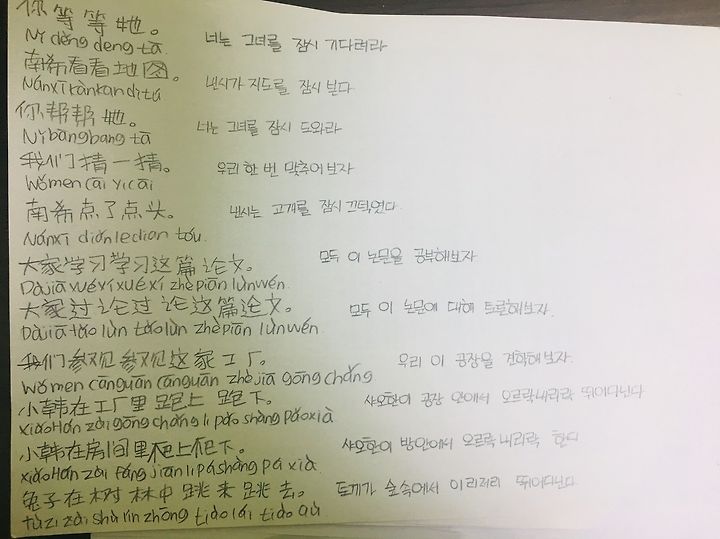 你等等她。
Nǐ děng deng tā 너는 그녀를 잠시 기다려라
南希看看地图。
Nánxī kànkan dìtú 낸시가 지도를 잠시 본다
你帮帮她。
Nǐ bāngbang tā 너는 그녀를 잠시 도와라
我们猜一猜。 우리 한 번 맞추어보자
Wǒmen cāi yi cāi
南希点了点头。 낸시는 고개를 잠시 끄덕였다.
Nánxī diǎn le dian tóu.
大家学习学习这篇论文。 모두 이 논문을 공부해보자
Dàjiā xuéxí xuéxí zhè piān lùnwén.
大家讨论讨论这篇论文。 모두 이 논문에 대해 토론해보자.
Dàjiā tǎo lùn tǎolùn zhèpiān lùnwén.
我们参观参观这家工厂。 우리 이 공장을 견학해보자.
Wǒmen cānguān cānguān zhè jiā gōng chǎng
小韩在工厂里跑上跑下。 샤오한이 공장 안에서 오르락내리락 뛰어다닌다
xiǎoHán zài gōng chǎng li pǎo shàng pǎo xià
小韩在房间里爬上爬下。 샤오한이 방안에서 오르락 내리락 한다
xiǎoHán zài fáng jiān li pá shàng pá xià.
兔子在树林中跳来跳去。 토끼가 숲속에서 이리저리 뛰어다닌다.
tùzi zài shù lín zhōng tiào lái tiào qù.